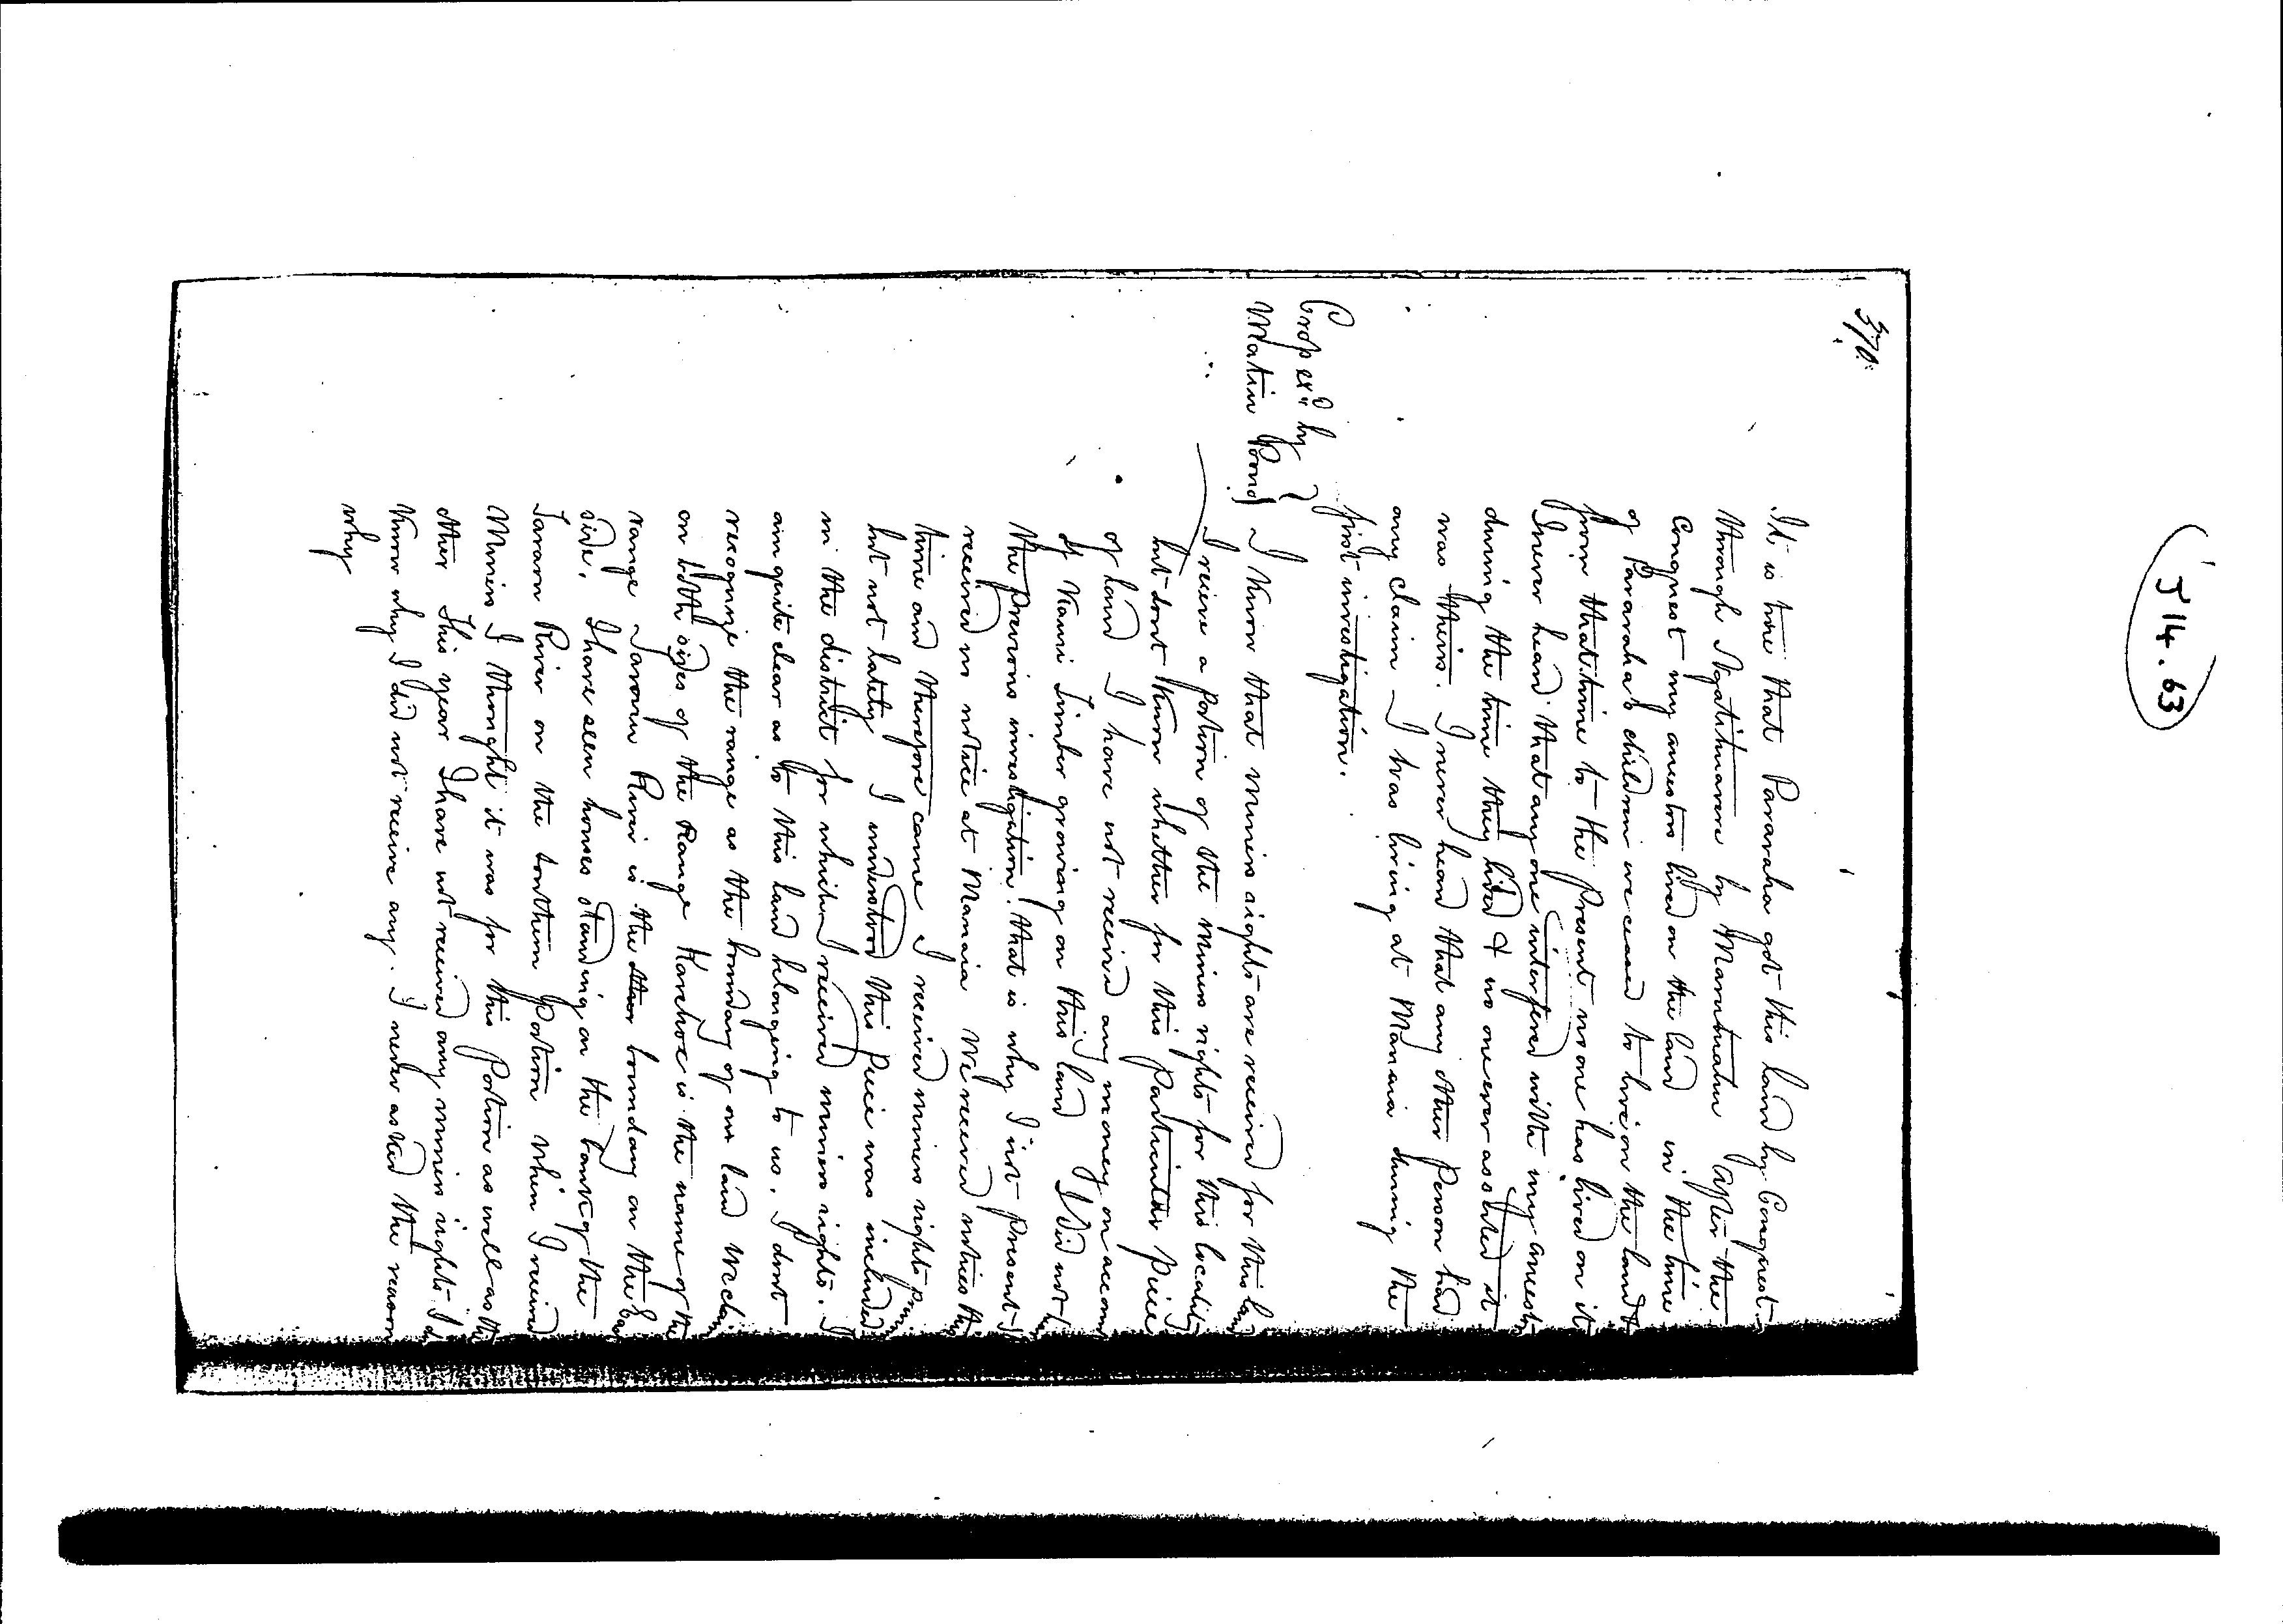 J 14.63
370.
It is true that Pararaha got this land by Conquest
through Ngatihuarere by Marutuahu After the
Conquest my ancestors lived on the land in the time
of Pararaha's children we ceased to live on the land &
from that time to the present no one has lived on it
I never heard that any one interfered with my ancestors
during the time they lived & no one ever asserted it
was theirs. I never heard that any other Person had
any claim I was living at Manaia during the
first investigation.
Crop exd by
Matiu Poono I know that miners rights are received for this land
I receive a portion of the miners rights for this locality
but dont know whether for this particular piece
of land I have not received any money on account
of Kauri Timber growing on this land I did not
the previous investigation. that is why I wasnt present I
received no notice at Manaia We received notices this
time and therefore came I received miners rights
but not lately I understood this piece was included
in the district for which I received miners rights. I
am quite clear as to this land belonging to us. I dont
recognize the range as the boundary of our land We claim
on both sides of the Range is the name of the
range Tararu River is the boundary on the
side. I have seen houses standing on the banks of the
Tararu River on the Southern portion when I received
Miners I thought it was for this portion as well as the
other This year I have not received any miners rights I
know why I did not receive any. I never asked the reason
why